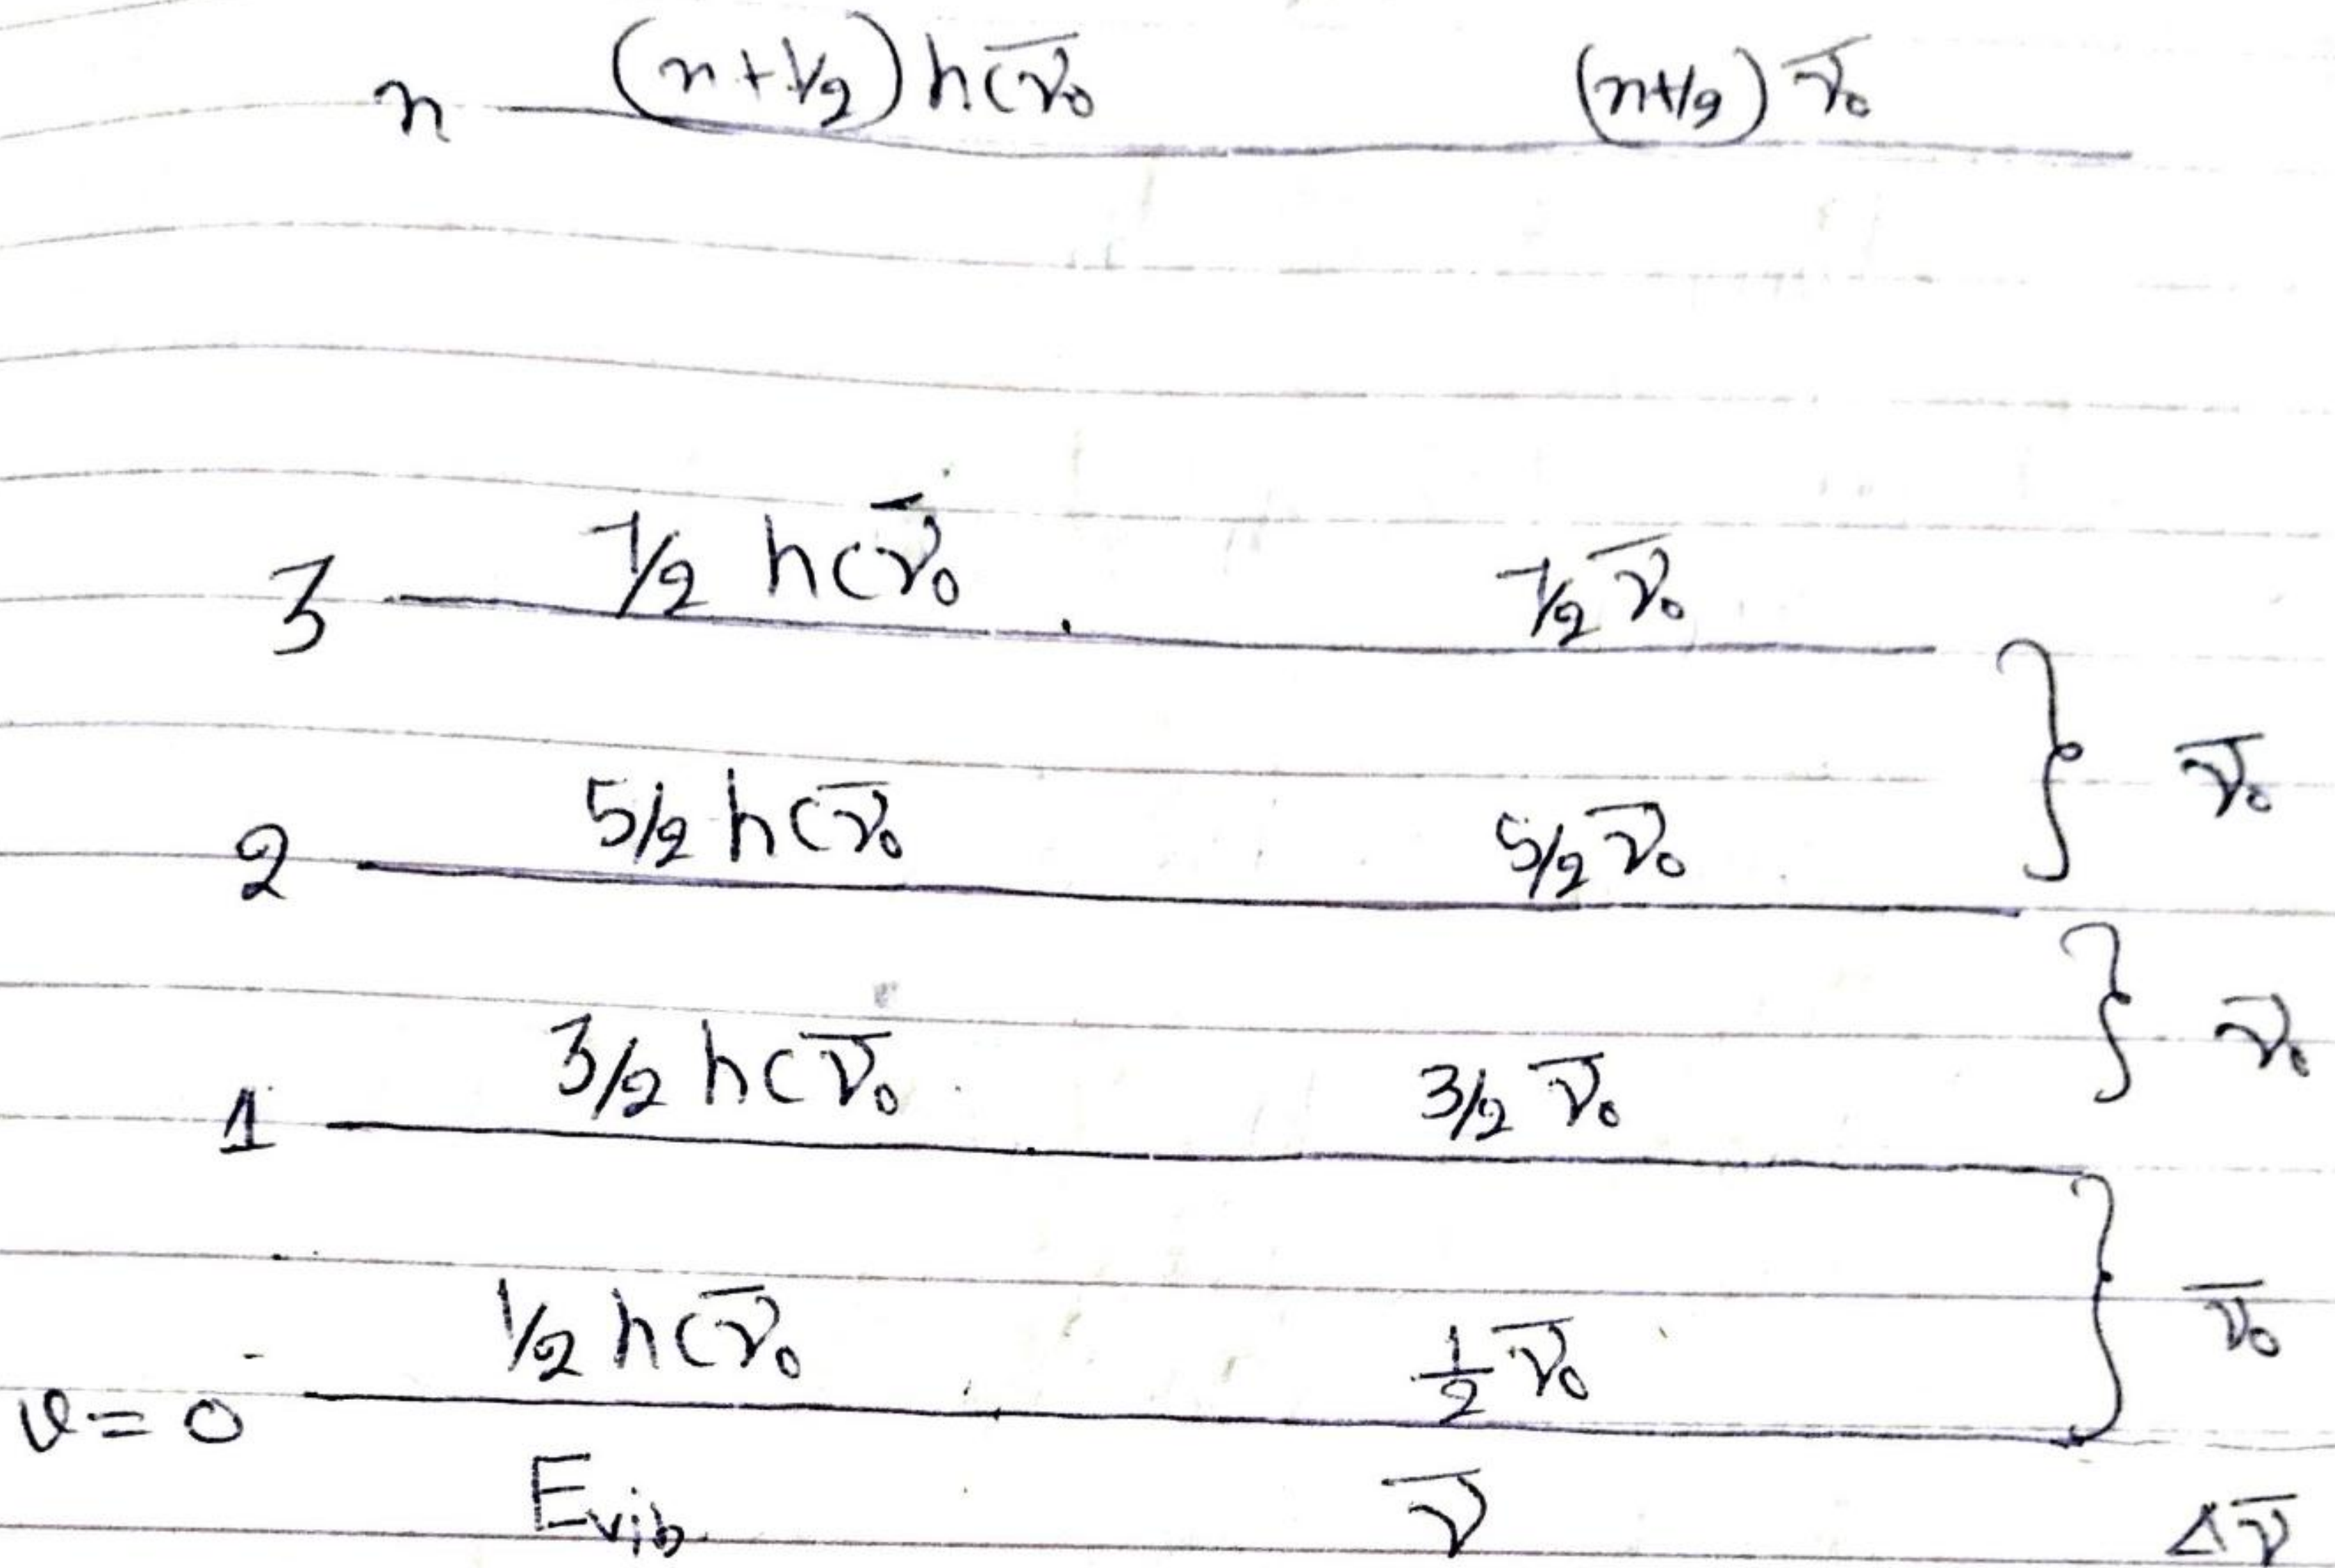 n (n+1/2) hcν̅₀ (n+1/2) ν̅₀
3 7/2 hcν̅₀ 7/2 ν̅₀
ν̅₀
2 5/2 hcν̅₀ 5/2 ν̅₀
ν̅₀
1 3/2 hcν̅₀ 3/2 ν̅₀
ν̅₀
v=0 1/2 hcν̅₀ 1/2 ν̅₀
Evib. ν̅ Δν̅